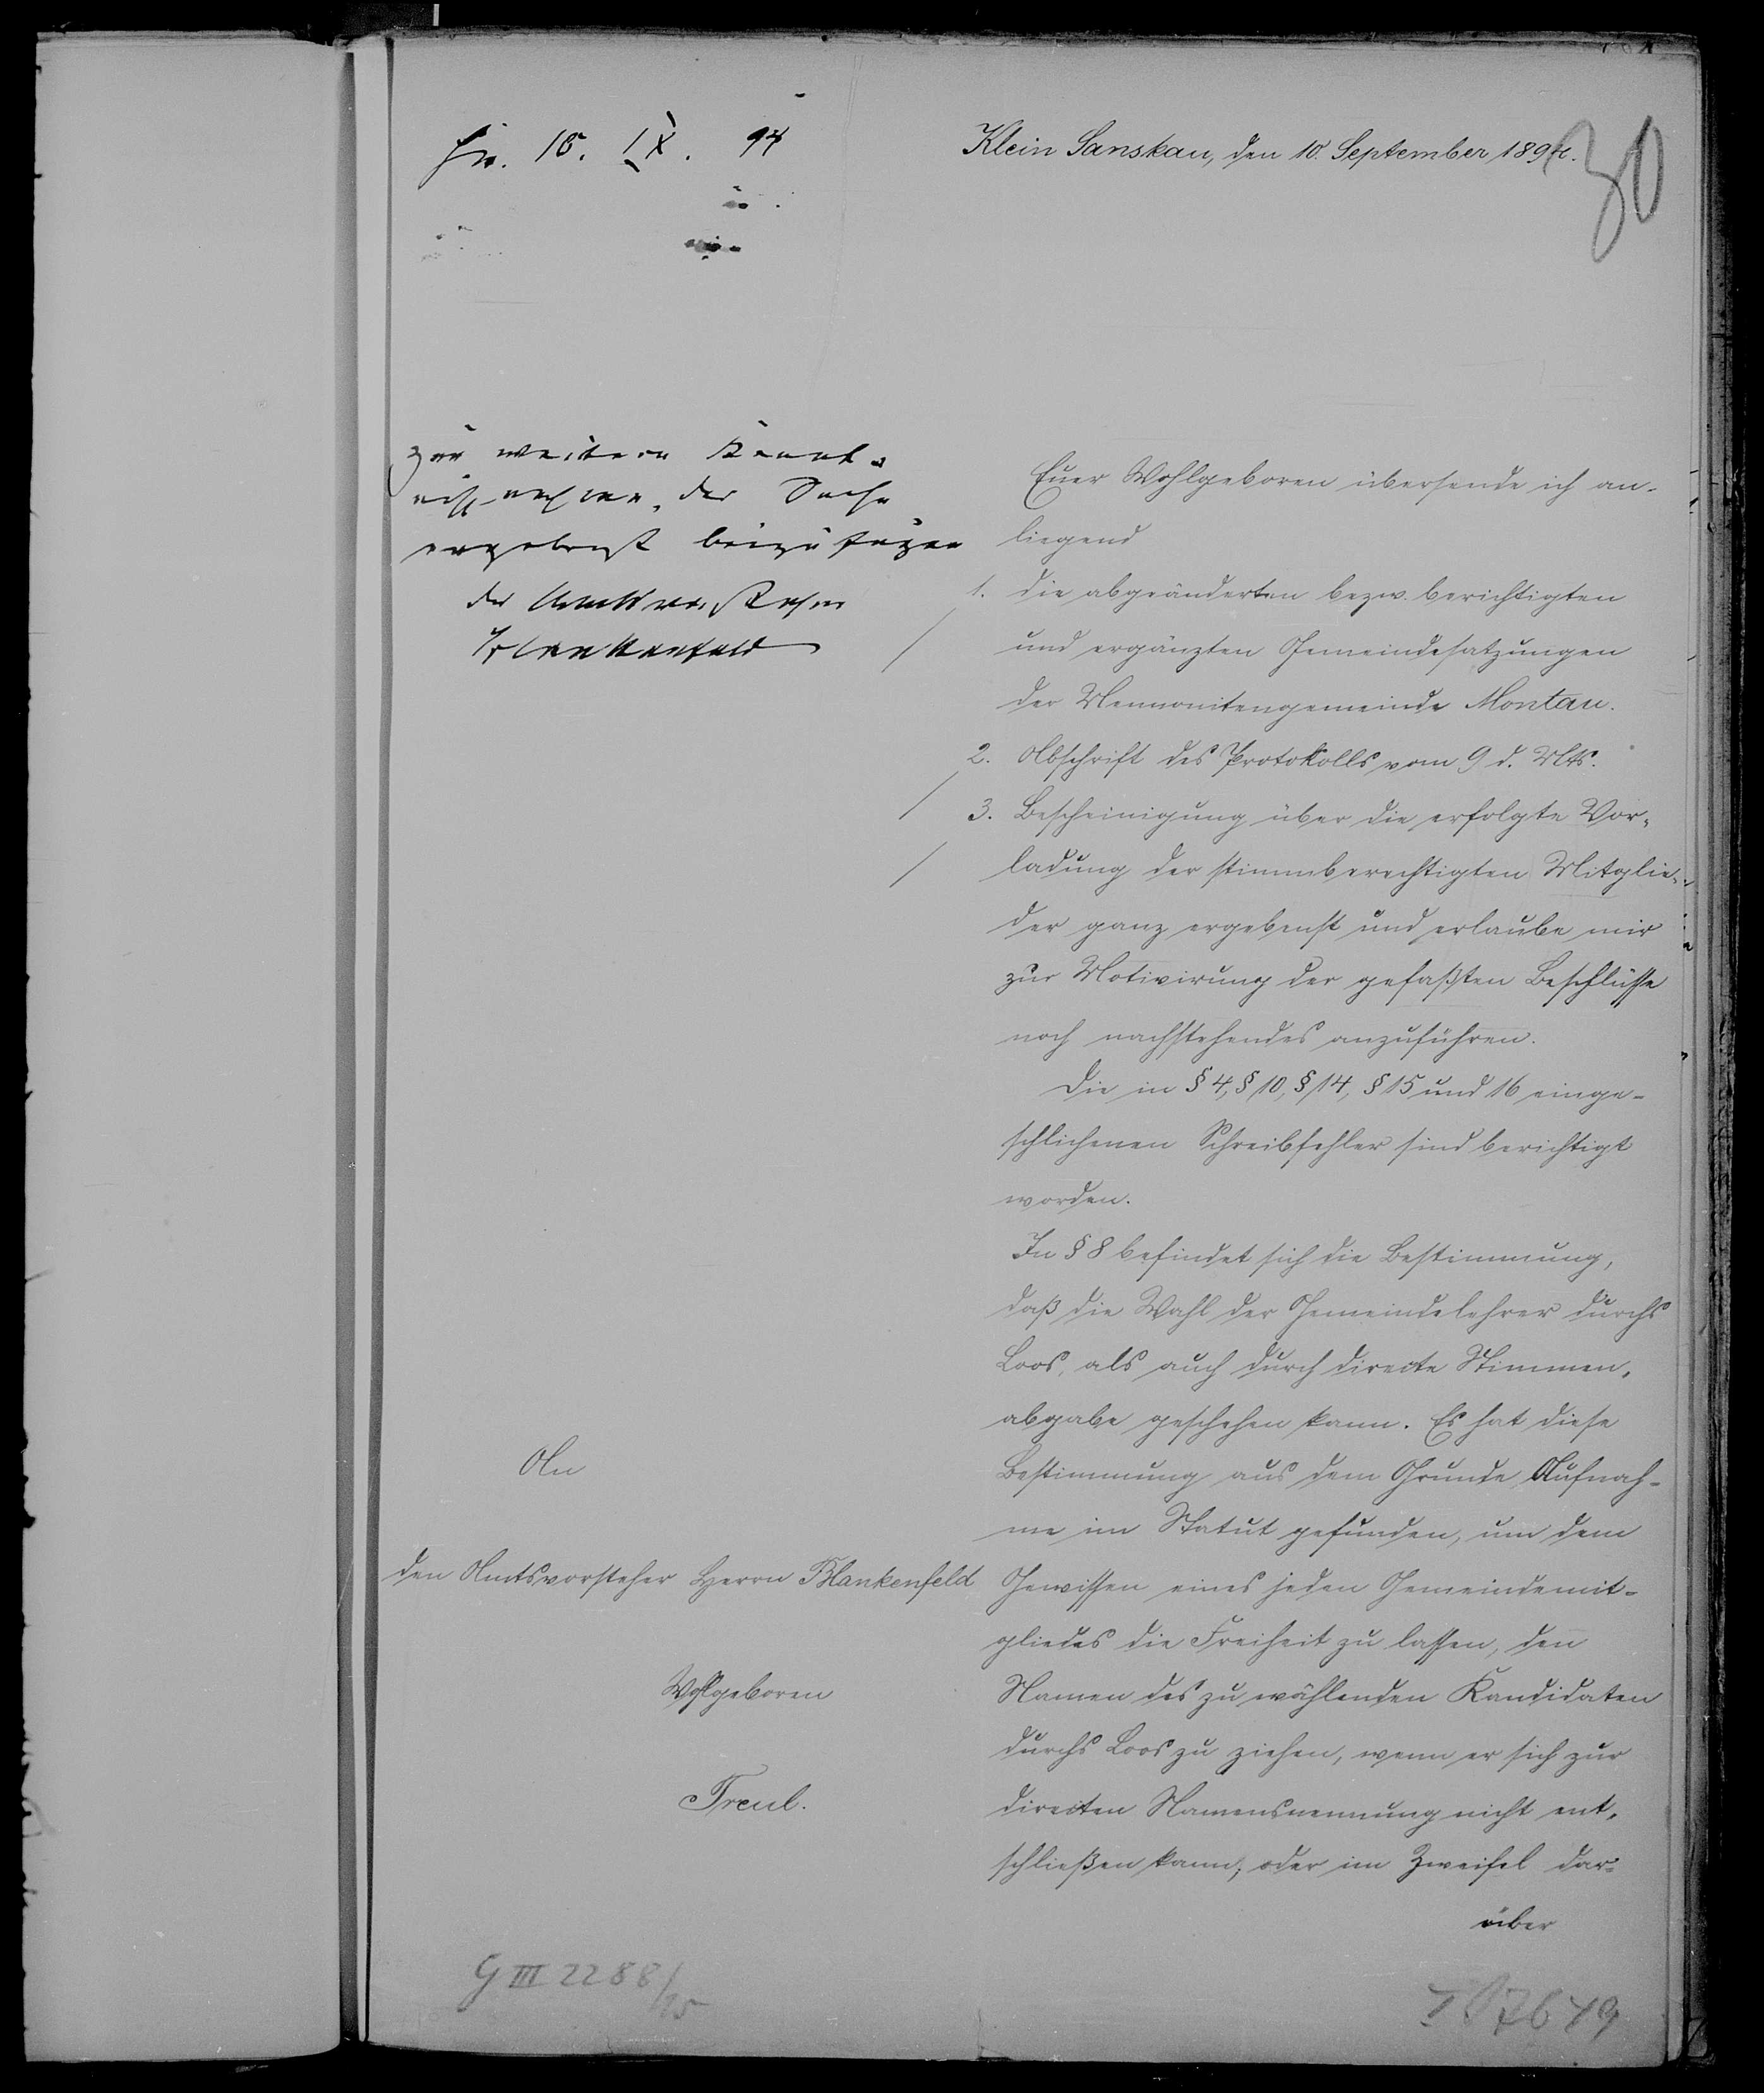 Klein Sanskau, den 10. September 1894.
30
Euer Wohlgeboren übersende ich an-
liegend
1. die abgeänderten bezw. berichtigten
und ergänzten Gemeindesatzungen
der Mennonitengemeinde Montau.
2. Abschrift des Protokolls vom 9 d. Mts.
3. Bescheinigung über die erfolgte Vor-
ladung der stimmberechtigten Mitglie-
der ganz ergebenst und erlaube mir
zur Motivirung der gefaßten Beschlüsse
noch nachstehendes anzuführen.
Die in § 4, § 10, § 14, § 15 und 16 einge-
schlichenen Schreibfehler sind berichtigt
worden.
In § 8 befindet sich die Bestimmung,
daß die Wahl der Gemeindelehrer durchs
Loos, als auch durch directe Stimmen-
abgabe geschehen kann. Es hat diese
Bestimmung aus dem Grunde Aufnah-
me im Statut gefunden, um dem
Gewissen eines jeden Gemeindemit-
gliedes die Freiheit zu lassen, den
Namen des zu wählenden Kandidaten
durchs Loos zu ziehen, wenn er sich zur
directen Namensnennung nicht ent-
schließen kann, oder im Zweifel dar-
über
IX. 94
zur weitern Kennt-
nißnahme der Sache
ergebenst beizufügen
der Amtsvorsteher
Blankenfeld
An
den Amtsvorsteher Herrn Blankenfeld
Wohlgeboren
Treul.
G III 2288/95
7649